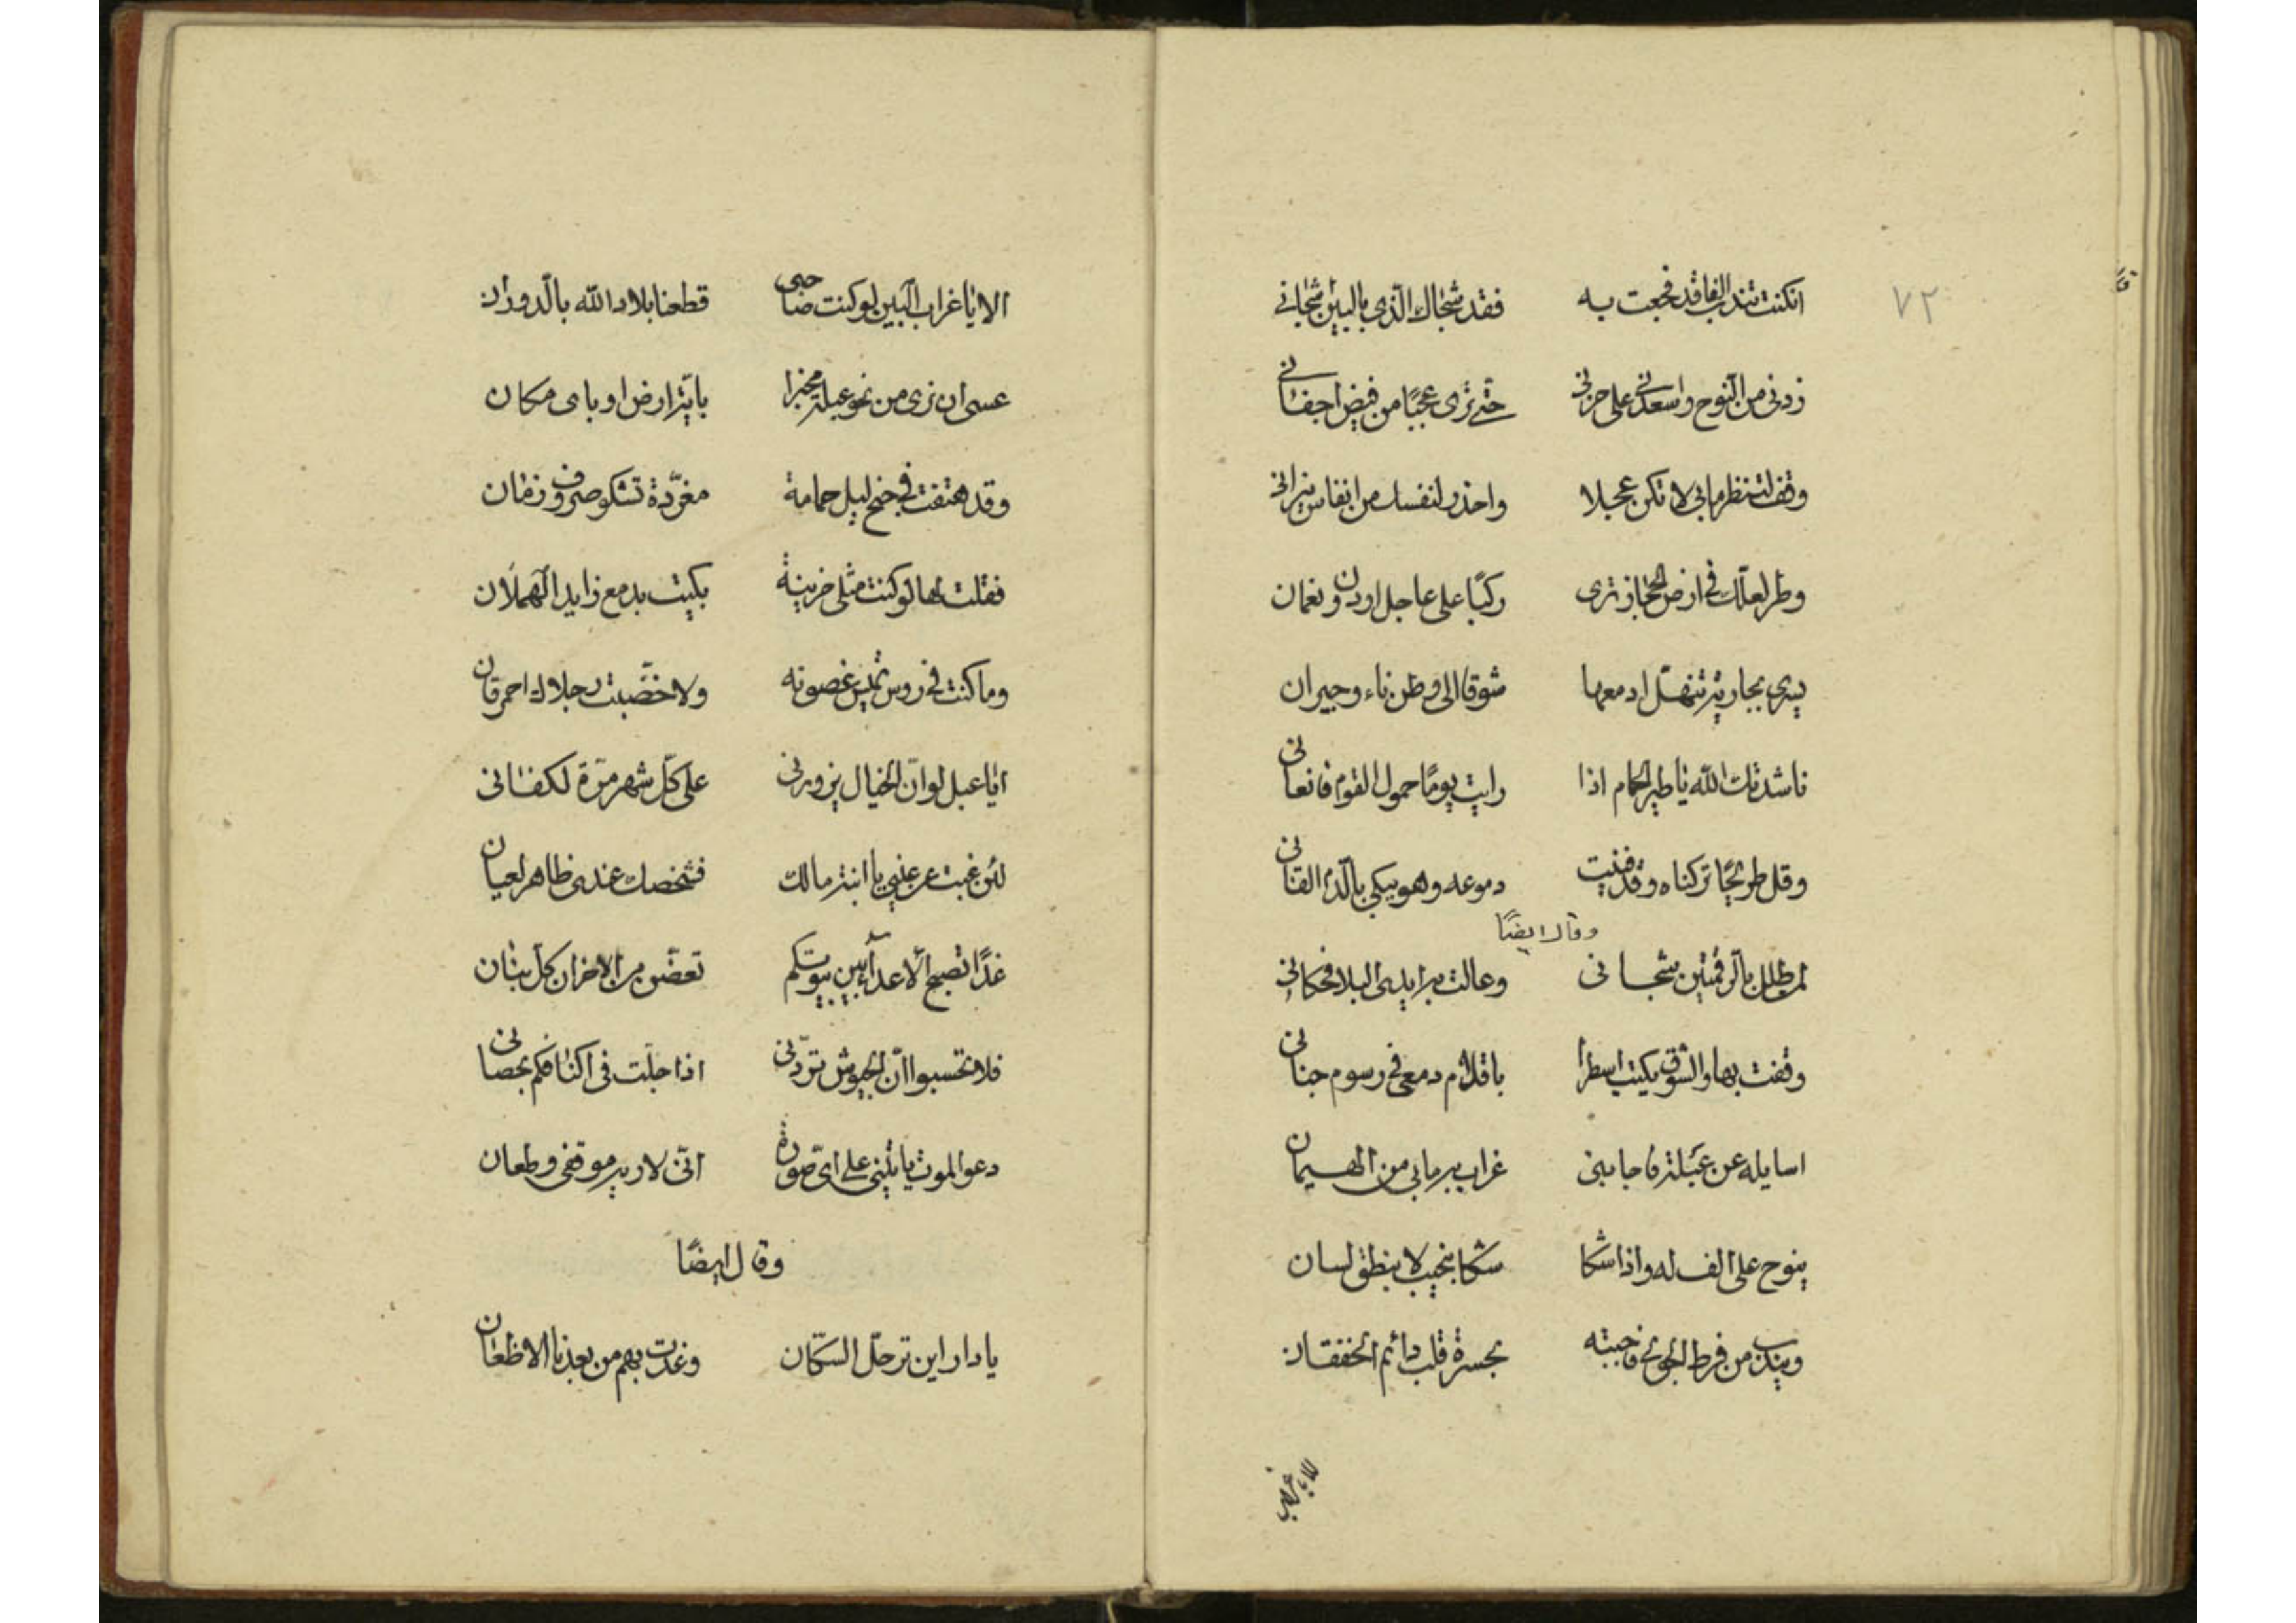 ٧٢
ان كنت تندب الفا قد فجعت به فقد شجاك الّذي بالبين اشجاني
زدنى من النّوح واسعدنى على حزنى حتّى ترى عجبًا من فيض اجفانى
وقف لتنظر مابى لا تكن عجلا واحذر لنفسك من انفاس نيرانى
وطر لعلّك فى ارض الحجاز ترى ركبًا على عالج او دون نعمان
يسرى بجارية تنهلّ ادمعها شوقا الى وطن ناء وجيران
ناشدتك الله يا طير الحمام اذا رايت يومًا حمول القوم فانعانى
وقل طريحًا تركناه وقد فنيت دموعه وهو يبكى بالدّم القانى
وقال ايضًا
لمن طلل بالرقمتين شجانى وعاثت به ايدى البلا فحكانى
وقفت بها والشوق يكتب اسطرا باقلام دمعى فى رسوم جنانى
اسايله عن عبلة فاجابنى غراب به مابى من الهيمان
ينوح على الف له واذا شكا شكا بنحيب لا بنطق لسان
ويندب من فرط الجوى فاجبته بحسرة قلب دائم الخفقان
الا يا غراب البين
الا يا غراب البين لو كنت صاحبى قطعنا بلاد الله بالدّوران
عسى ان نرى من نحو عبلة مخبرا بايّة ارض او باى مكان
وقد هتفت فى جنح ليل حمامة مغرّدة تشكو صروف زمان
فقلت لها لو كنت مثلى حزينة بكيت بدمع زايد الهملان
وما كنت فى روس تميس غصونه ولا خضّبت رجلاك احمر قان
ايا عبل لو انّ الخيال يزورنى على كلّ شهر مرّة لكفانى
لئن غبت عن عينى يا ابنة مالك فشخصك عندى ظاهر لعيان
غدًا تصبح الاعدآء بين بيوتكم تعضّ من الاحزان كلّ بنان
فلا تحسبوا انّ الجيوش تردّنى اذا جلت فى اكنافكم بحصانى
دعوا الموت ياتينى على اىّ صورة اتى لاريه موقفى وطعان
وقال ايضًا
يا دار اين ترحّل السكّان وغدت بهم من بعدنا الاظعان